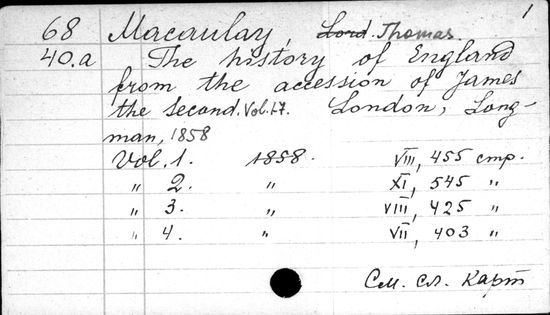 1
68 Macaulay, Lord. Thomas.
40.a The history of England
from the accession of James
the Second. Vol. 1-7. London, Long-
man, 1858
Vol. 1. 1858. VIII, 455 стр.
" 2. " XI, 545 "
" 3. " VIII, 425 "
" 4. " VII, 403 "
См. сл. карт